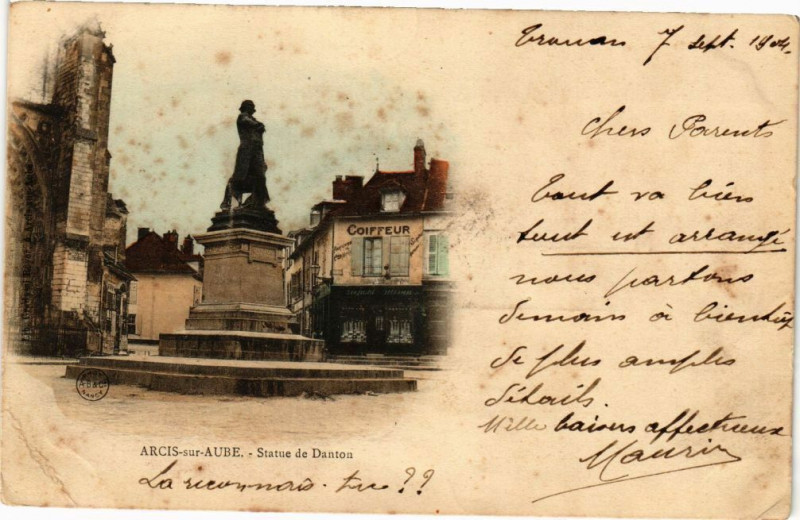 7 Sept. 1904.
Chers Parents
Tout va bien
tout est arrangé
nous partons
demain à bientôt
de plus amples
détails.
Mille baisers affectueux
Maurice
COIFFEUR
ARCIS-sur-AUBE. - Statue de Danton
La reconnais-tu ??